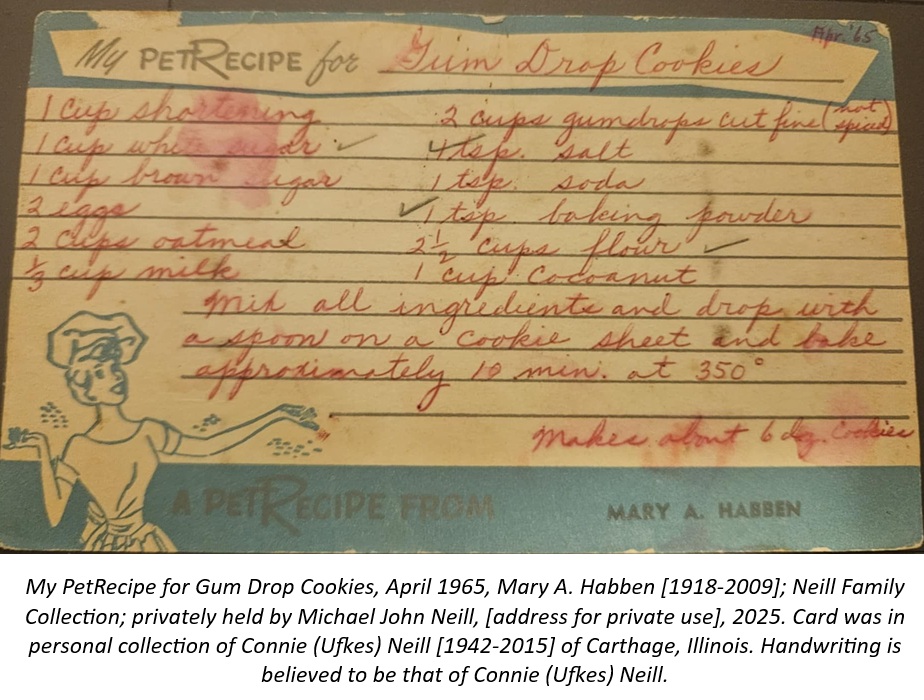 Apr. '65
My PETRECIPE for Gum Drop Cookies
1 cup shortening
1 cup white sugar
1 cup brown sugar
2 eggs
2 cups oatmeal
1/3 cup milk
2 cups gumdrops cut fine (not spiced)
tsp. salt
1 tsp. soda
1 tsp baking powder
2 1/2 cups flour
1 cup cocoanut
Mix all ingredients and drop with
a spoon on a cookie sheet and bake
approximately 10 min. at 350°
Makes about 6 doz. Cookies
A PETRECIPE FROM MARY A. HABBEN
My PetRecipe for Gum Drop Cookies, April 1965, Mary A. Habben [1918-2009]; Neill Family
Collection; privately held by Michael John Neill, [address for private use], 2025. Card was in
personal collection of Connie (Ufkes) Neill [1942-2015] of Carthage, Illinois. Handwriting is
believed to be that of Connie (Ufkes) Neill.